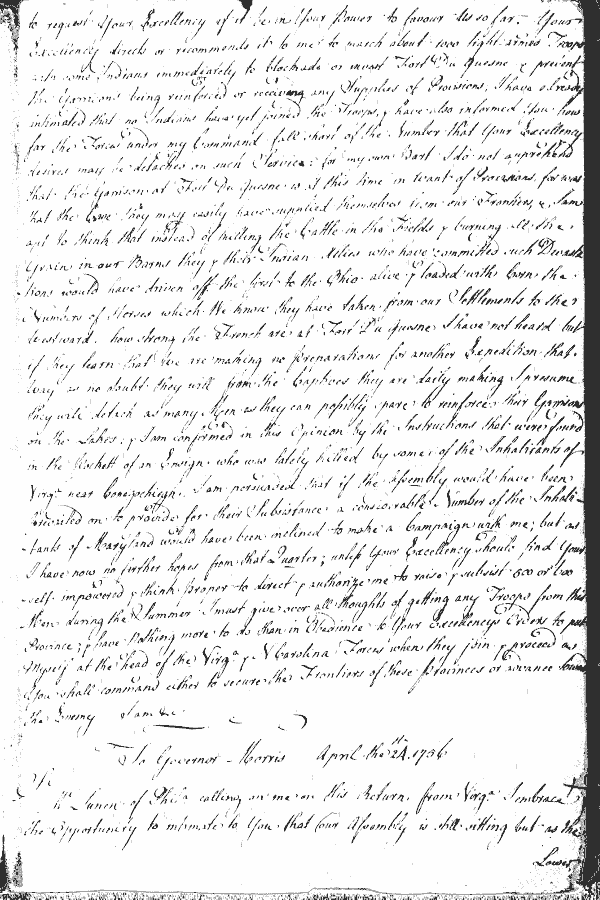 to request Your Excellency if it be in Your Power to favour Us so far. Your
Excellency directs or recommends it to me to march about 1000 light armed Troops
with some Indians immediately to blockade or invest Fort Du Quesne & prevent
the Garrisons being reinforced or receiving any Supplies of Provisions, I have already
intimated that no Indians have yet joined the Troops, & have also informed You how
far the Forces under my Command fall short of the Number that Your Excellency
desires may be detached on such Service: for my own Part I do not apprehend
that the Garrison at Fort Du Quesne is at this time in want of Provisions, for
that the Enemy may easily have supplied themselves from our Frontiers, & I am
apt to think that instead of killing the Cattle in the Fields & burning all the
Grain in our Barns they & their Indian Allies who have committed such Devasta
tions would have driven off the first to the Ohio alive & loaded with Corn the
Numbers of Horses which We know they have taken from our Settlements to the
Westward. how strong the French are at Fort Du Quesne I have not heard but
if they learn that We are making no Preparations for another Expedition that
Way as no doubt they will from the Captives they are daily making I presume
they will detach as many Men as they can possibly spare to reinforce their Garrisons
on the Lakes; & I am confirmed in this Opinion by the Instructions that were found
in the Pockett of an Ensign who was lately killed by some of the Inhabitants of
Virga near I am persuaded that if the Assembly would have been
prevailed on to provide for their Subsistance a considerable Number of the Inhabi-
tants of Maryland would have been inclined to make a Campaign with me; but as
I have now no further hopes from that Quarter; unless Your Excellency should find Your
self impowered & think proper to direct & authorize me to raise & subsist 500 or 600
Men during the Summer I must give over all thoughts of getting any Troops from this
Province; & have Nothing more to do than in Obedience to Your Excellencys Orders to put
Myself at the head of the Virga & N Carolina Forces when they join & proceed as
You shall command either to secure the Frontiers of these Provinces or advance
the Enemy I am &c
To Governor Morris April the 24th 1756
Sr
of Phila calling on me on his Return from Virga I embrace
the Opportunity to intimate to You that Our Assembly is still sitting but as the
Lower